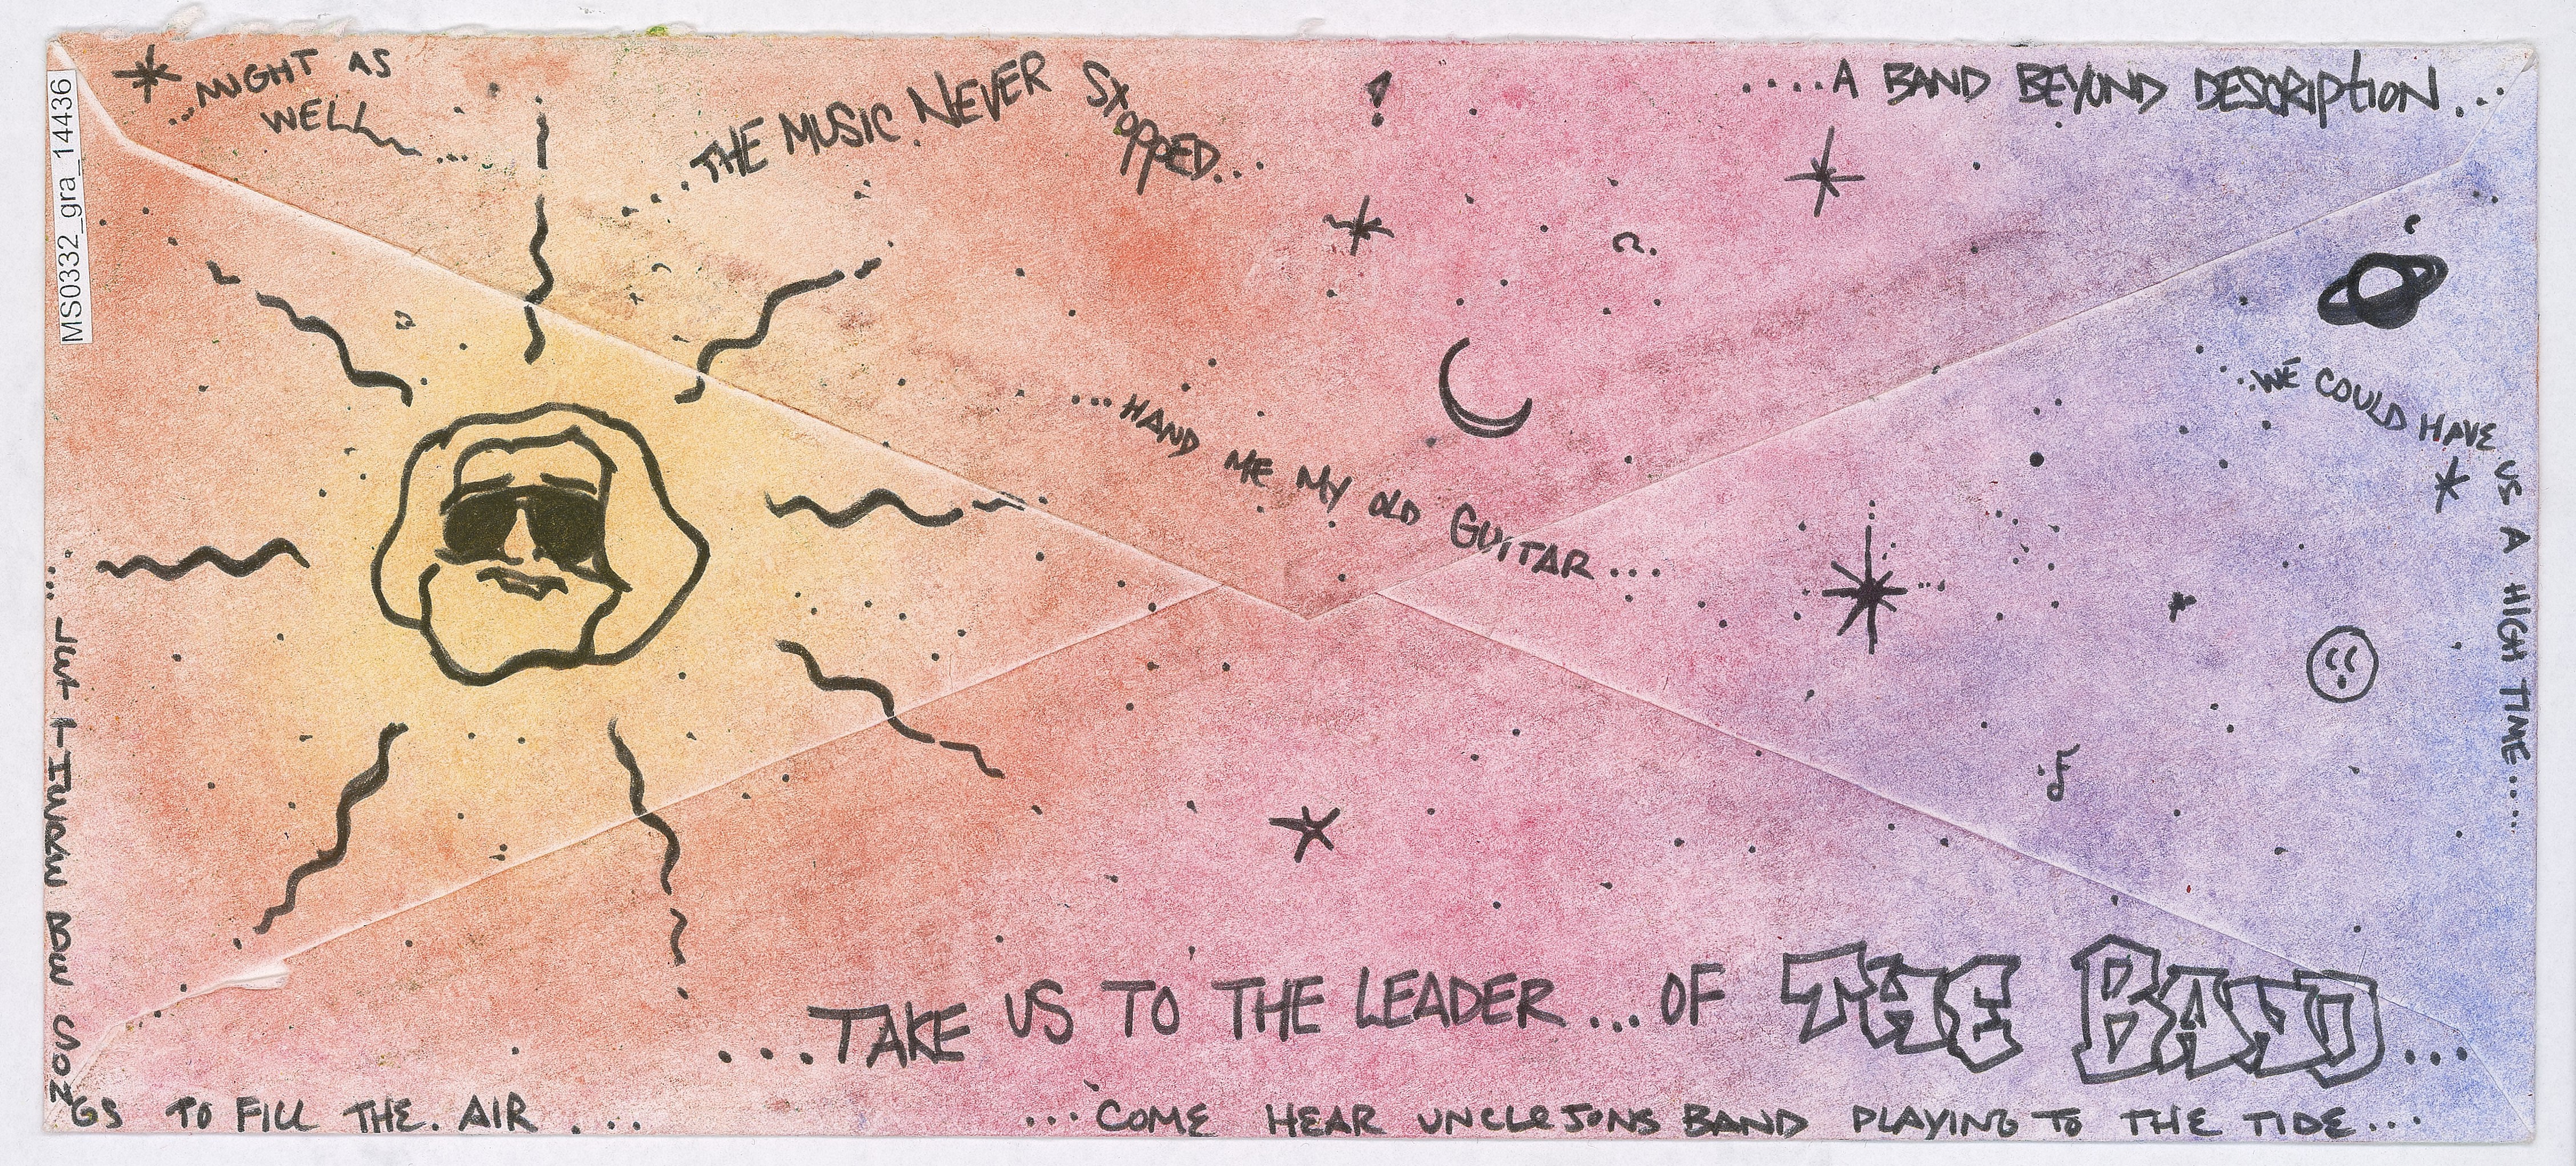 ...MIGHT AS
WELL....
...THE MUSIC NEVER STOPPED...
....A BAND BEYOND DESCRIPTION...
MS0332_gra_14436
...HAND ME MY OLD GUITAR...
...WE COULD HAVE US A HIGH TIME.....
...TAKE US TO THE LEADER...OF THE BAND...
...LET THERE BE SON
GS TO FILL THE AIR....
...COME HEAR UNCLE JONS BAND PLAYING TO THE TIDE...